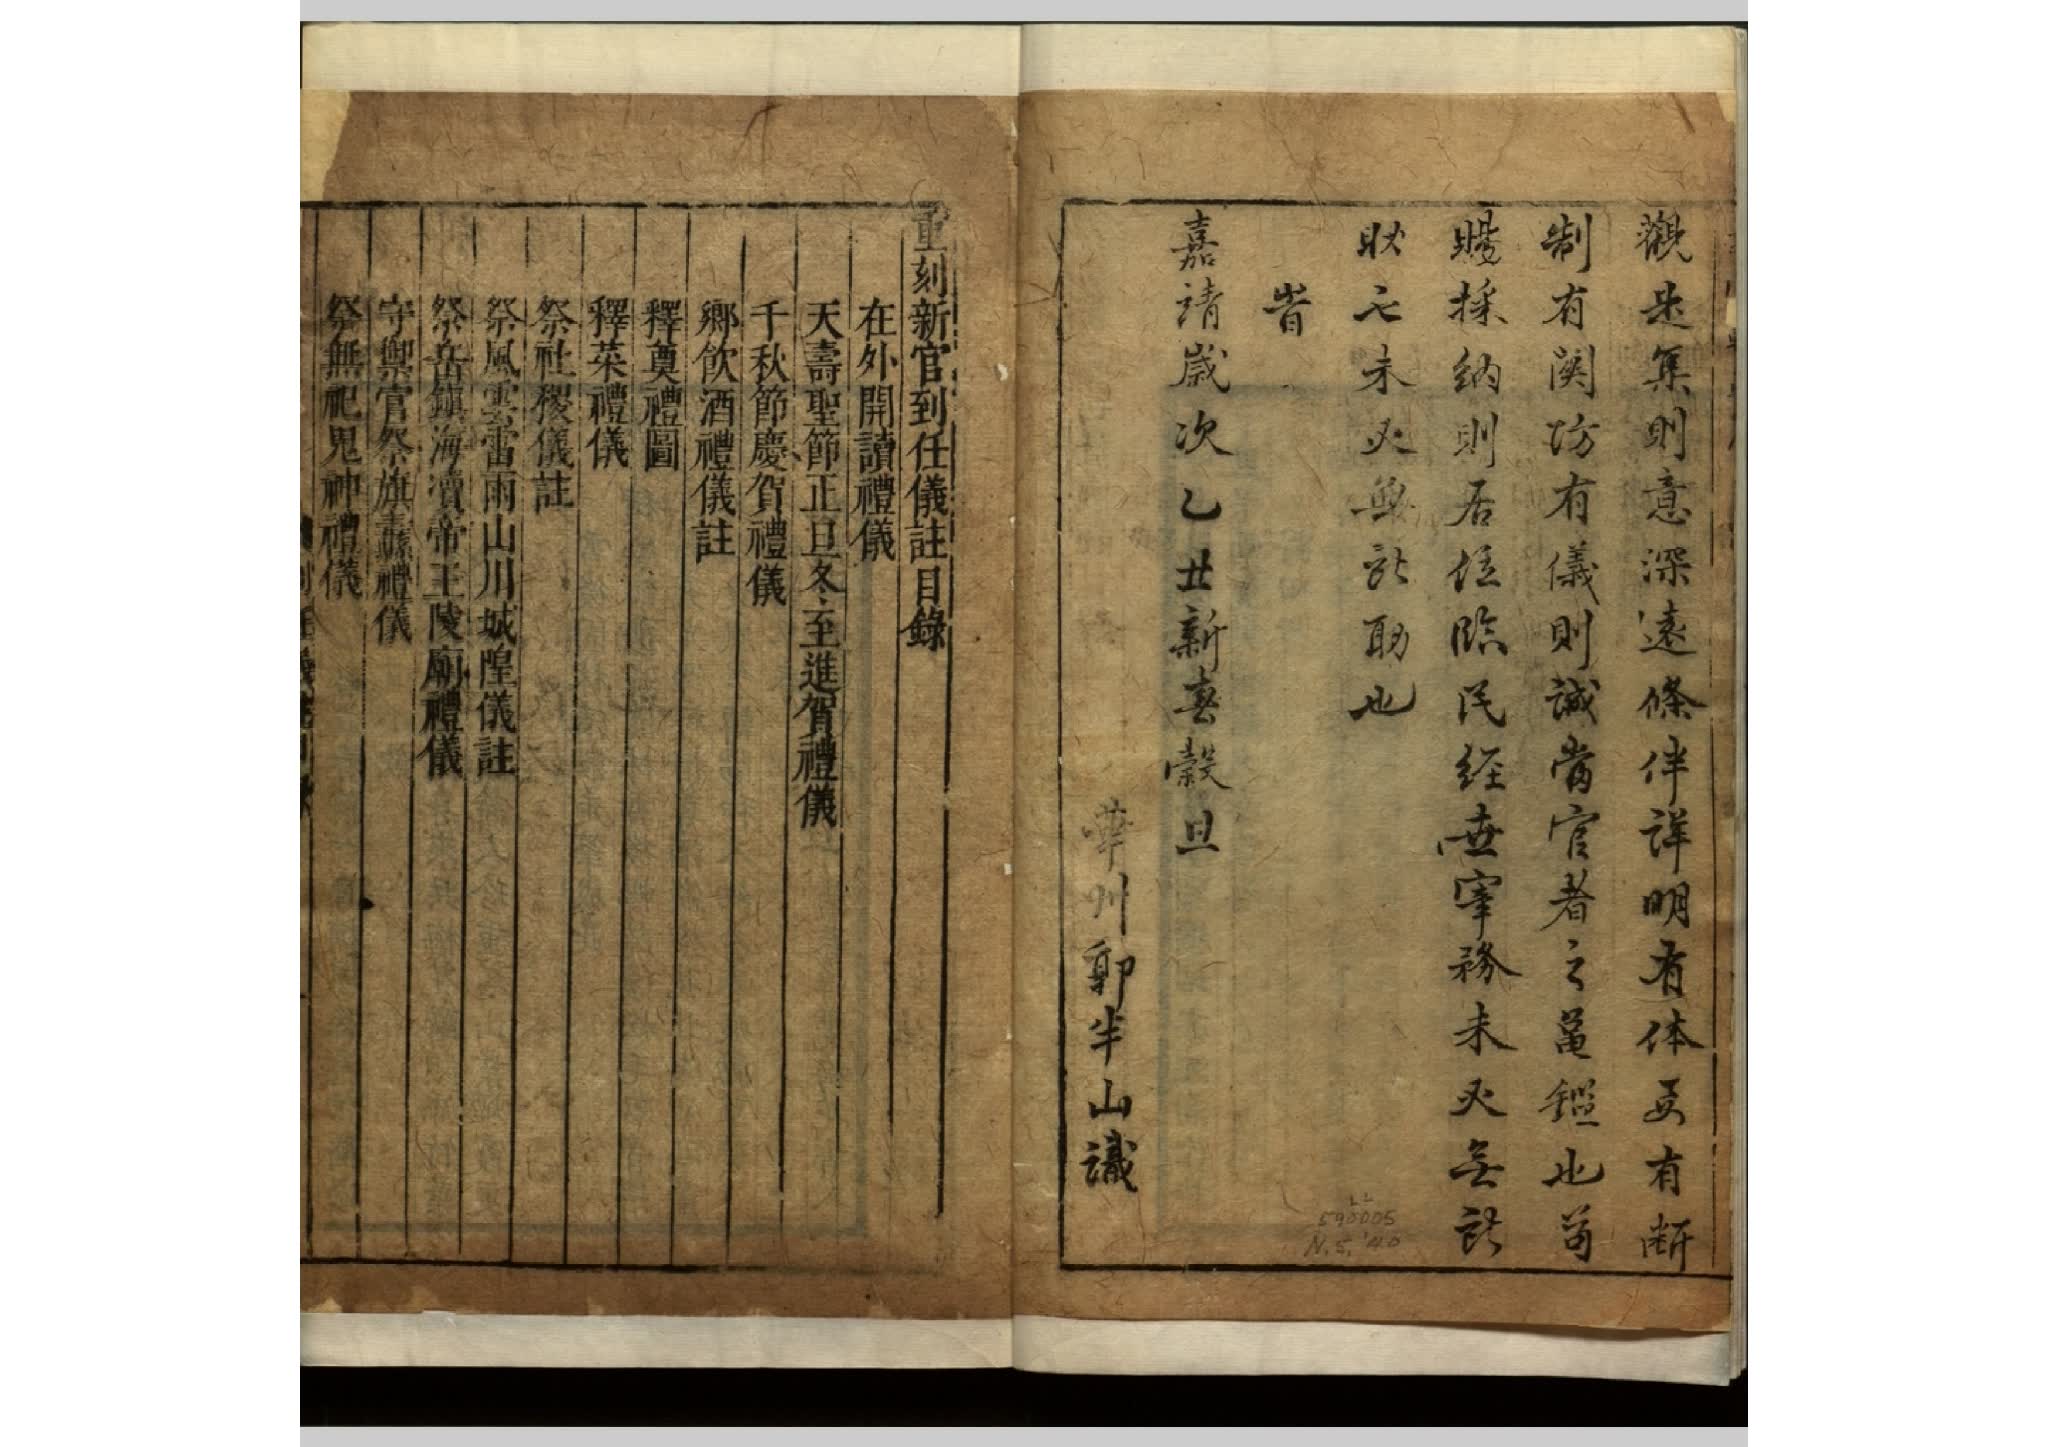 觀是集則意深遠條件詳明有体要有断
制有関防有儀則誠當官者之蓍鑑也苟
賜採納則居位臨民経世宰務未必無所
助也
旹
嘉靖歲次乙丑新春穀旦
華州郭半山識
590005
N. 5, '40
重刻新官到任儀註目錄
在外開讀禮儀
天壽聖節正旦冬至進賀禮儀
千秋節慶賀禮儀
鄉飲酒禮儀註
釋奠禮圖
釋菜禮儀
祭社稷儀註
祭風雲雷雨山川城隍儀註
祭岳鎮海瀆帝王陵廟禮儀
守禦官祭旗纛禮儀
祭無祀鬼神禮儀